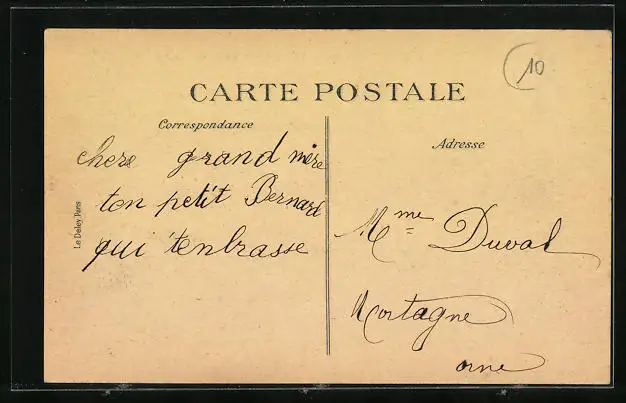 10
CARTE POSTALE
Correspondance
Adresse
chere grand mère
ton petit Bernard
qui t'enbrasse
Mme Duval
Mortagne
orne
Le Deley, Paris